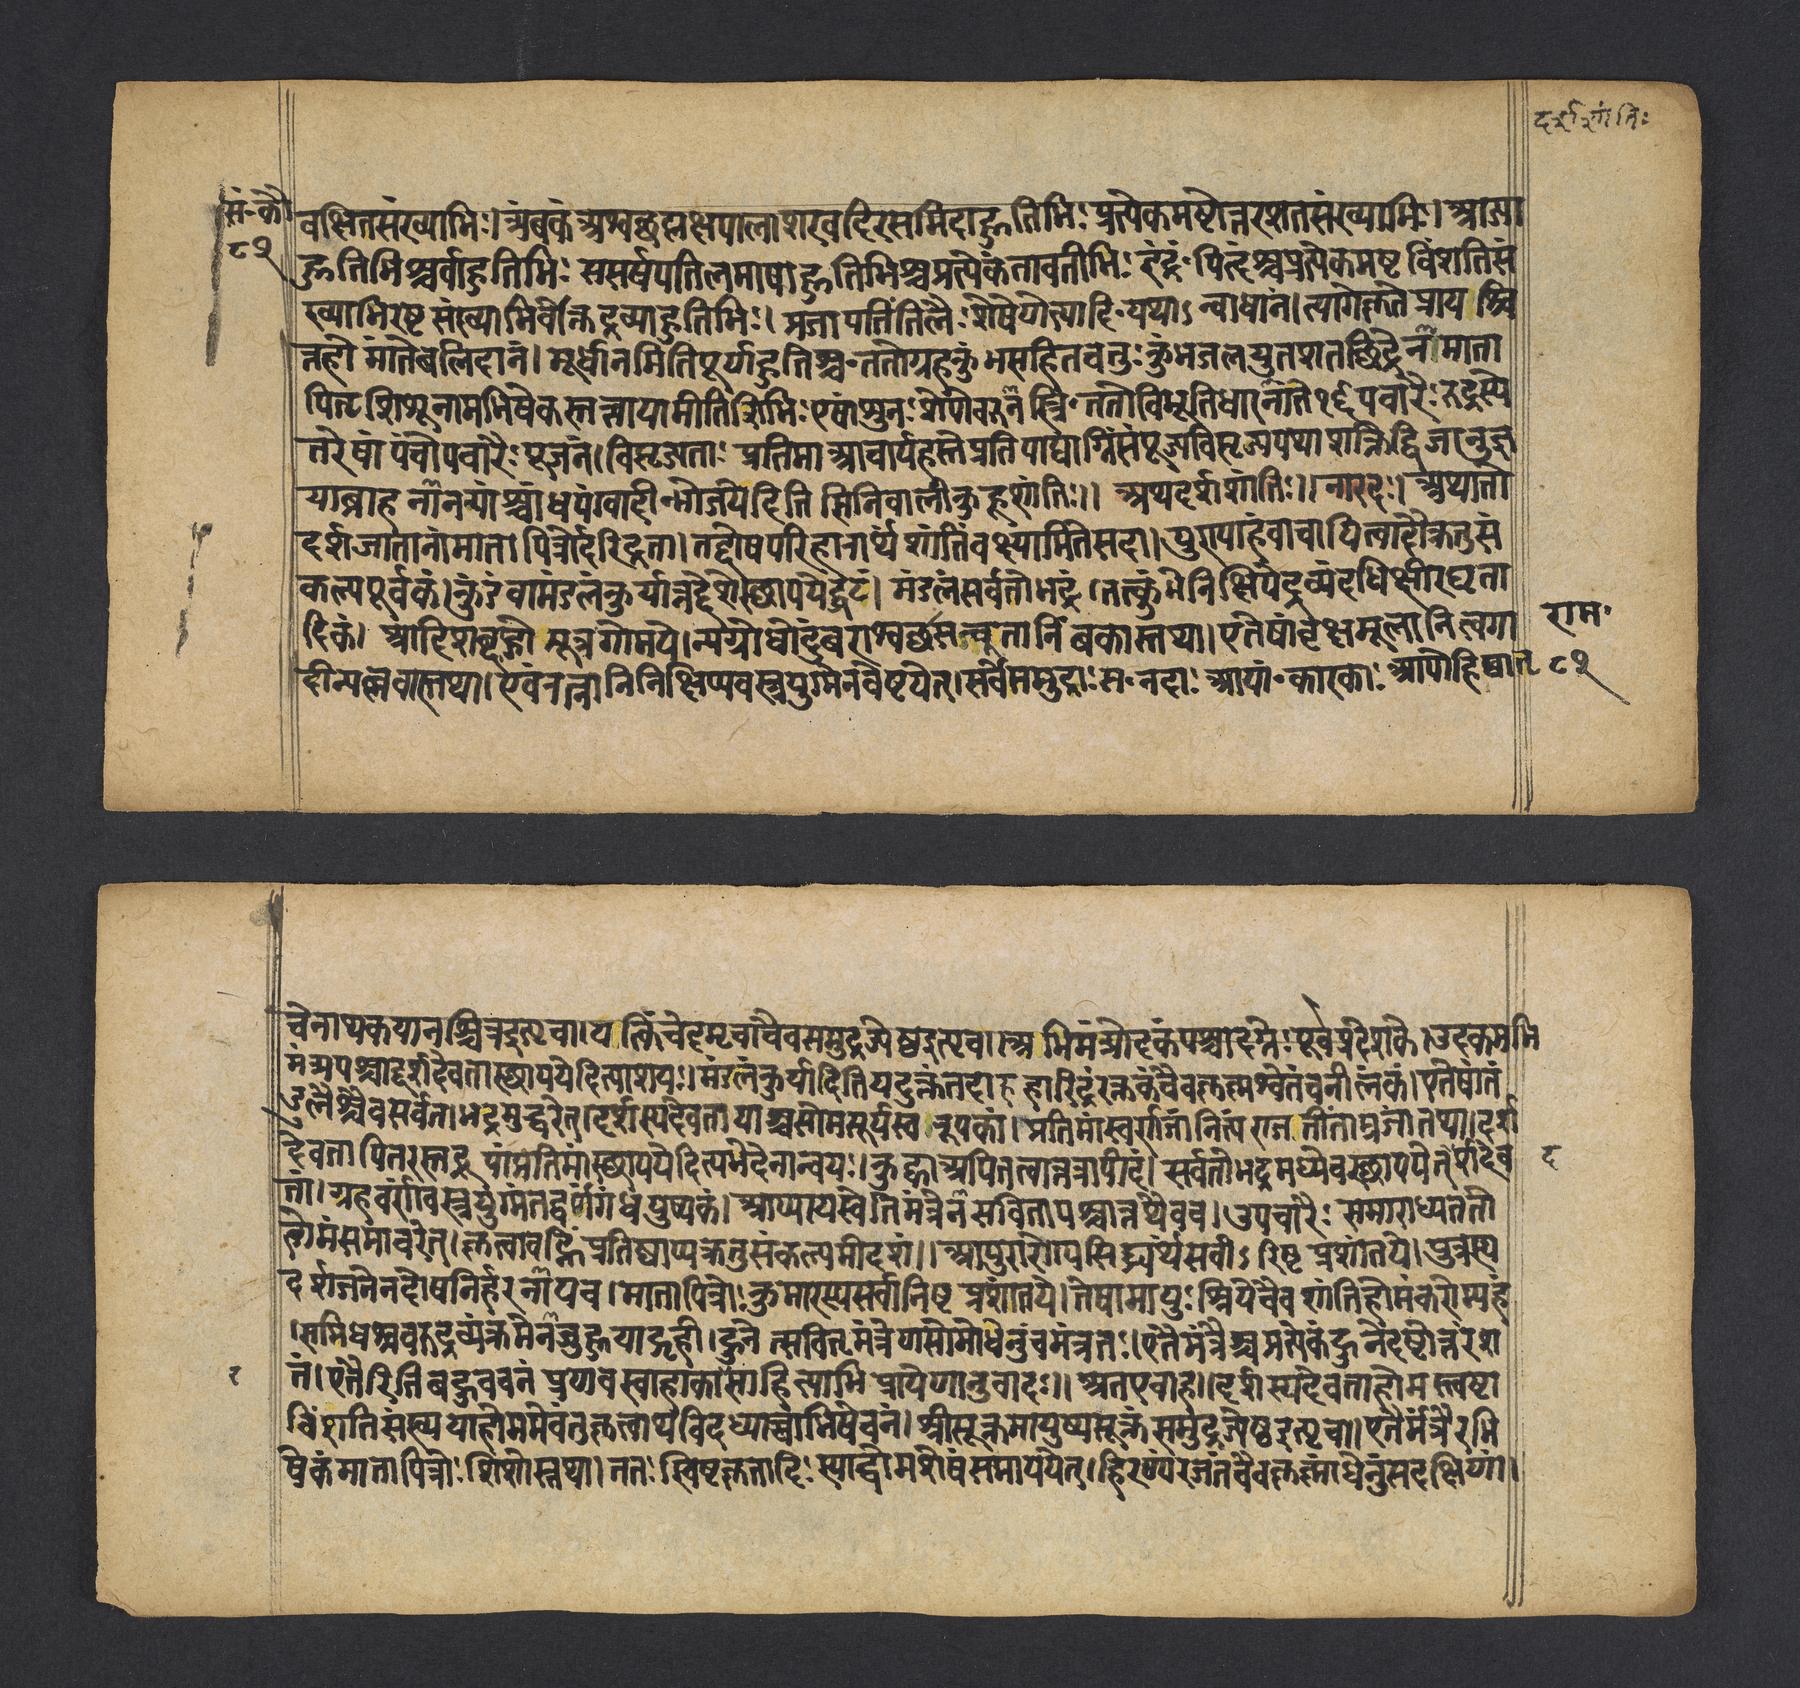 दर्शशांतिः
सं॰कौ
८१
वक्षितसंख्याभिः। त्र्यंबकं अश्वत्थप्लक्षपालाशखदिरसमिदाहुतिभिः प्रत्येकमष्टोत्तरशतसंख्याभिः। आज्या
हुतिभिश्चर्वाहुतिभिः ससर्षपतिलमाषाहुतिभिश्च प्रत्येकं तावतीभिः इंद्रं॰ पितॄंश्च प्रत्येकमष्टविंशतिसं
ख्याभिरष्टसंख्याभिर्वोक्तद्रव्याहुतिभिः। प्रजापतिं तिलैः शेषेणेत्यादि॰ यथाऽन्वाधानं। त्यागेत्कृते प्राय श्चि
त्तहोमांते बलिदानं। मूर्धानमितिपूर्णाहुतिश्च॰ ततो ग्रहकुंभसहितचतुःकुंभजलयुतशतछिद्रेन माता
पितृशिशूनामभिषेकस्तत्वायामीति त्रिभिः एवं शुनःशेपोवरुनं त्रि॰ ततो विभूतिधारनांते १६ पचारैः रुद्रस्ये
तरेषां पंचोपचारैः पूजनं। विसृज्यताः प्रतिमा आचार्यहस्ते प्रतिपाद्याग्निं संपूज्य विसृज्य यथाशक्ति द्विजाननुज्ञ
याब्राह्मनानन्यांश्चांधपंग्वादीन्भोजयेदिति सिनिवालीकुहूशांतिः।। अथदर्शशांतिः।। नारदः। अथातो
दर्शजातानां मातापित्रोर्दरिद्रता। तद्दोषपरिहारार्थं शांतिं वक्ष्यामि ते सदा। पुण्याहं वाचयित्वादौ क्रतुसं
कल्पपूर्वकं। कुंडं वा मंडलं कुर्यात्तद्देशे स्थापयेद्घटं। मंडलं सर्वतोभद्रं। तत्कुंभे निक्षिपेद्द्रव्यं दधिक्षीरघृता
दिकं। आदिशब्दान्मूत्रगोमये। न्यग्रोधोदुंबराश्वत्थसचूतानिंबकास्तथा। एतेषां वृक्षमूलानि त्वगा
राम॰
दीन्पल्लवास्तथा। पंचरत्नानि निक्षिप्य वस्त्रयुग्मेन वेष्टयेत्। सर्वे समुद्राः स॰ नदाः आयां॰ कारकाः आपोहिष्ठातृ ८१
चेनाथ कयानश्चित्रदृत्यृचा। यत्किंचेदमृचा चैव समुद्रज्येष्ठदृत्यृचा। अभिमंत्र्योदकं पश्चादग्नेः पूर्वप्रदेशके। उदकमभि
मंत्र्य पश्चाद्दर्शदेवतास्थापयेदित्याशयः। मंडलं कुर्यादिति यदुक्तं तदाह हारिद्रं रक्तकं चैव कृष्णश्वेतं च नीलकं। एतेषां तं
डुलैश्चैव सर्वतोभद्रमुद्धरेत्। दर्शस्य देवताया श्च सोमसूर्यस्वरूपकां। प्रतिमां स्वर्णजां नित्यं राजतीं ताम्रजां तथा। दर्श
देवता पितरस्तद्रूपां प्रतिमां स्थापयेदित्यभेदेनान्वयः। कुह्वाअपितत्वात्तत्रापीदं। सर्वतोभद्रमध्ये च स्थापयेत्दर्शदेव
द
तां। ग्रहवर्णावस्त्रयुग्मं तद्वर्णगंधपुष्पकं। आप्यायस्वेति मंत्रेन सवितापश्चात्तथैव च। उपचारैः समाराध्य ततो
होमं समाचरेत्। कृत्वावह्निं प्रतिष्ठाप्य क्रतुसंकल्पमीदृशं।। आयुरारोग्यसिद्ध्यर्थं सर्वाऽरिष्टप्रशांतये। पुत्रस्य
दर्शजनेनदोषनिर्हरनाय च। मातापित्रोः कुमारस्य सर्वानिष्टप्रशांतये। तेषामायुःश्रियेचैव शांतिहोमं करोम्यहं
।समिधश्चचरुद्रव्यं क्रमेन जुहुयाद्गृही। हुनेत्सवितृमंत्रेण सोमोधेनुं च मंत्रतः। एतैर्मंत्रैश्च प्रत्येकं हुनेदष्टोत्तरंश
तं। एतैरिति बहुवचनं प्रणवस्वाहाकारसाहित्याभिप्रायेणानुवादः।। अतएवाह।। दर्शस्य देवताहोम स्त्वष्टा
विंशतिसंख्यया होममेवं तु कृत्वाथ विदध्याच्चाभिषेचनं। श्रीसूक्तमायुष्यसूक्तं समुद्रज्येष्ठदृत्यृचा। एतैर्मंत्रैरभि
षेकं मातापित्रोः शिशोस्तथा। ततः स्विष्टकृतादिः स्याद्धोमशेषं समापयेत्। हिरण्यं रजतं चैव कृष्णां धेनुं सदक्षिणां।